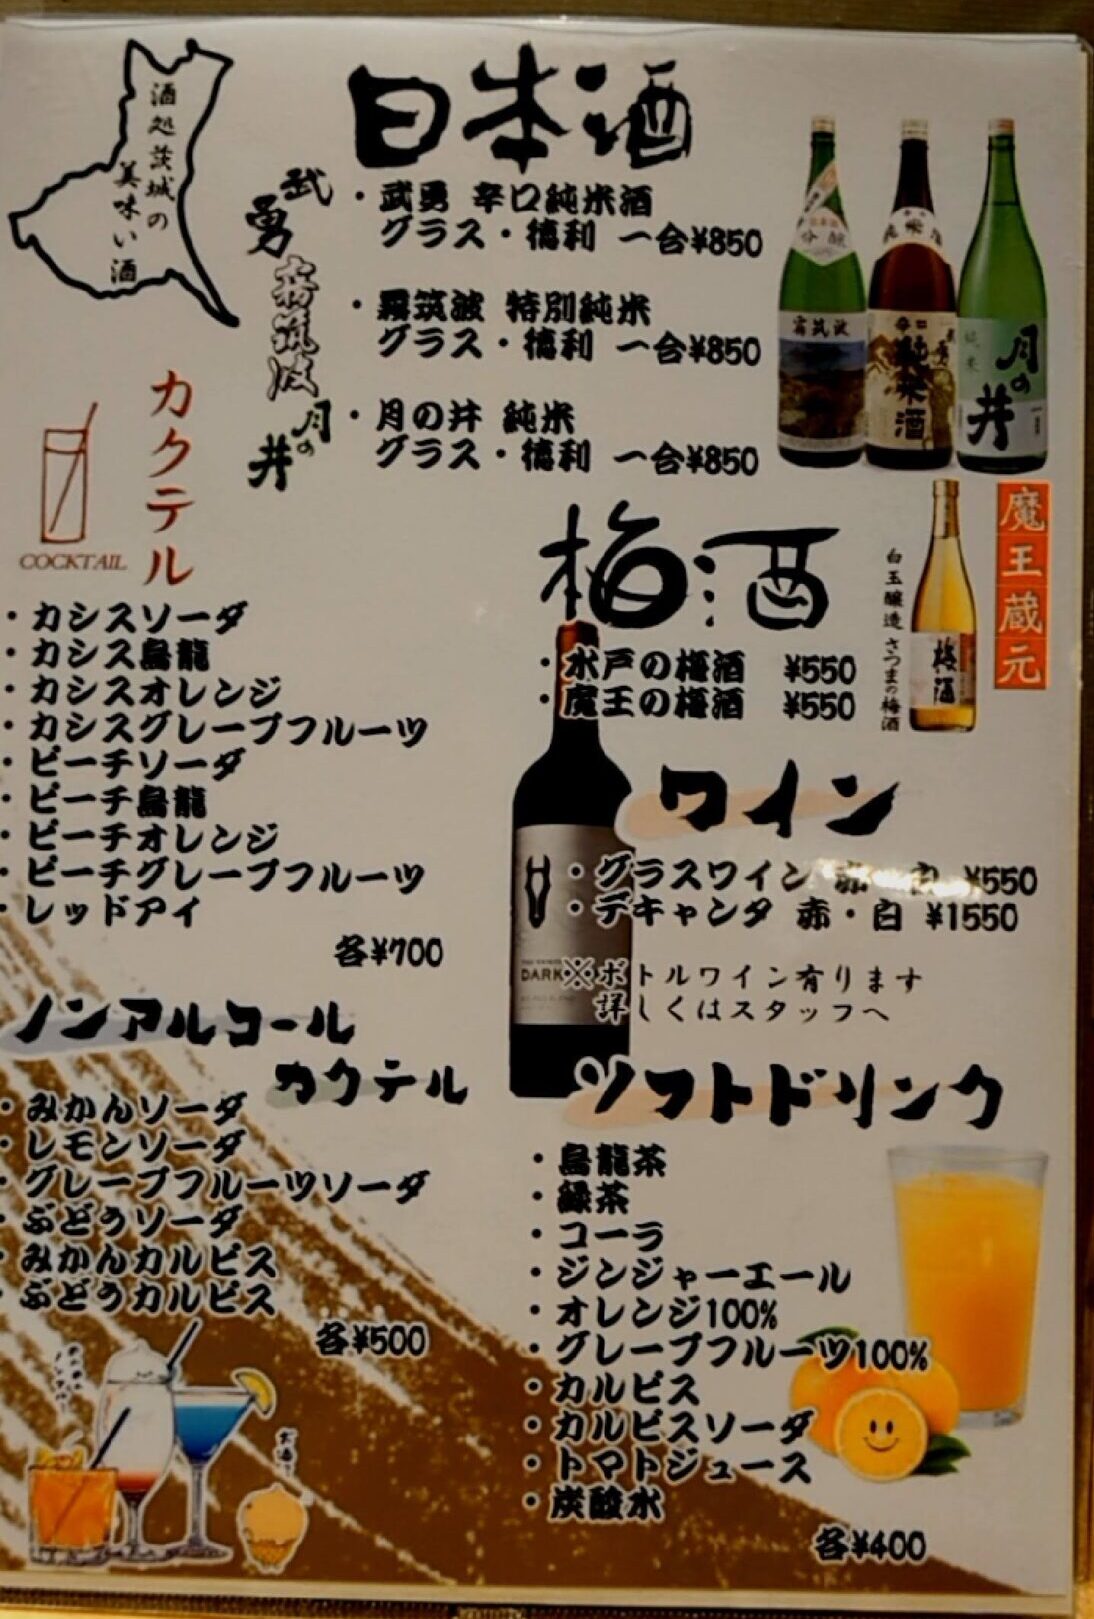 酒処茨城の
美味い酒
日本酒
武勇
・武勇 辛口純米酒
グラス・徳利 一合¥850
霧筑波
・霧筑波 特別純米
グラス・徳利 一合¥850
月の井
・月の井 純米
グラス・徳利 一合¥850
霧筑波
辛口
純米酒
純米
月の井
カクテル
COCKTAIL
・カシスソーダ
・カシス烏龍
・カシスオレンジ
・カシスグレープフルーツ
・ピーチソーダ
・ピーチ烏龍
・ピーチオレンジ
・ピーチグレープフルーツ
・レッドアイ
各¥700
梅酒
・水戸の梅酒 ¥550
・魔王の梅酒 ¥550
白玉醸造 さつまの梅酒
梅酒
魔王蔵元
ワイン
・グラスワイン 赤・白 ¥550
・デキャンタ 赤・白 ¥1550
※ボトルワイン有ります
詳しくはスタッフへ
DARK
ノンアルコール
カクテル
・みかんソーダ
・レモンソーダ
・グレープフルーツソーダ
・ぶどうソーダ
・みかんカルピス
・ぶどうカルピス
各¥500
ソフトドリンク
・烏龍茶
・緑茶
・コーラ
・ジンジャーエール
・オレンジ100%
・グレープフルーツ100%
・カルピス
・カルピスソーダ
・トマトジュース
・炭酸水
各¥400